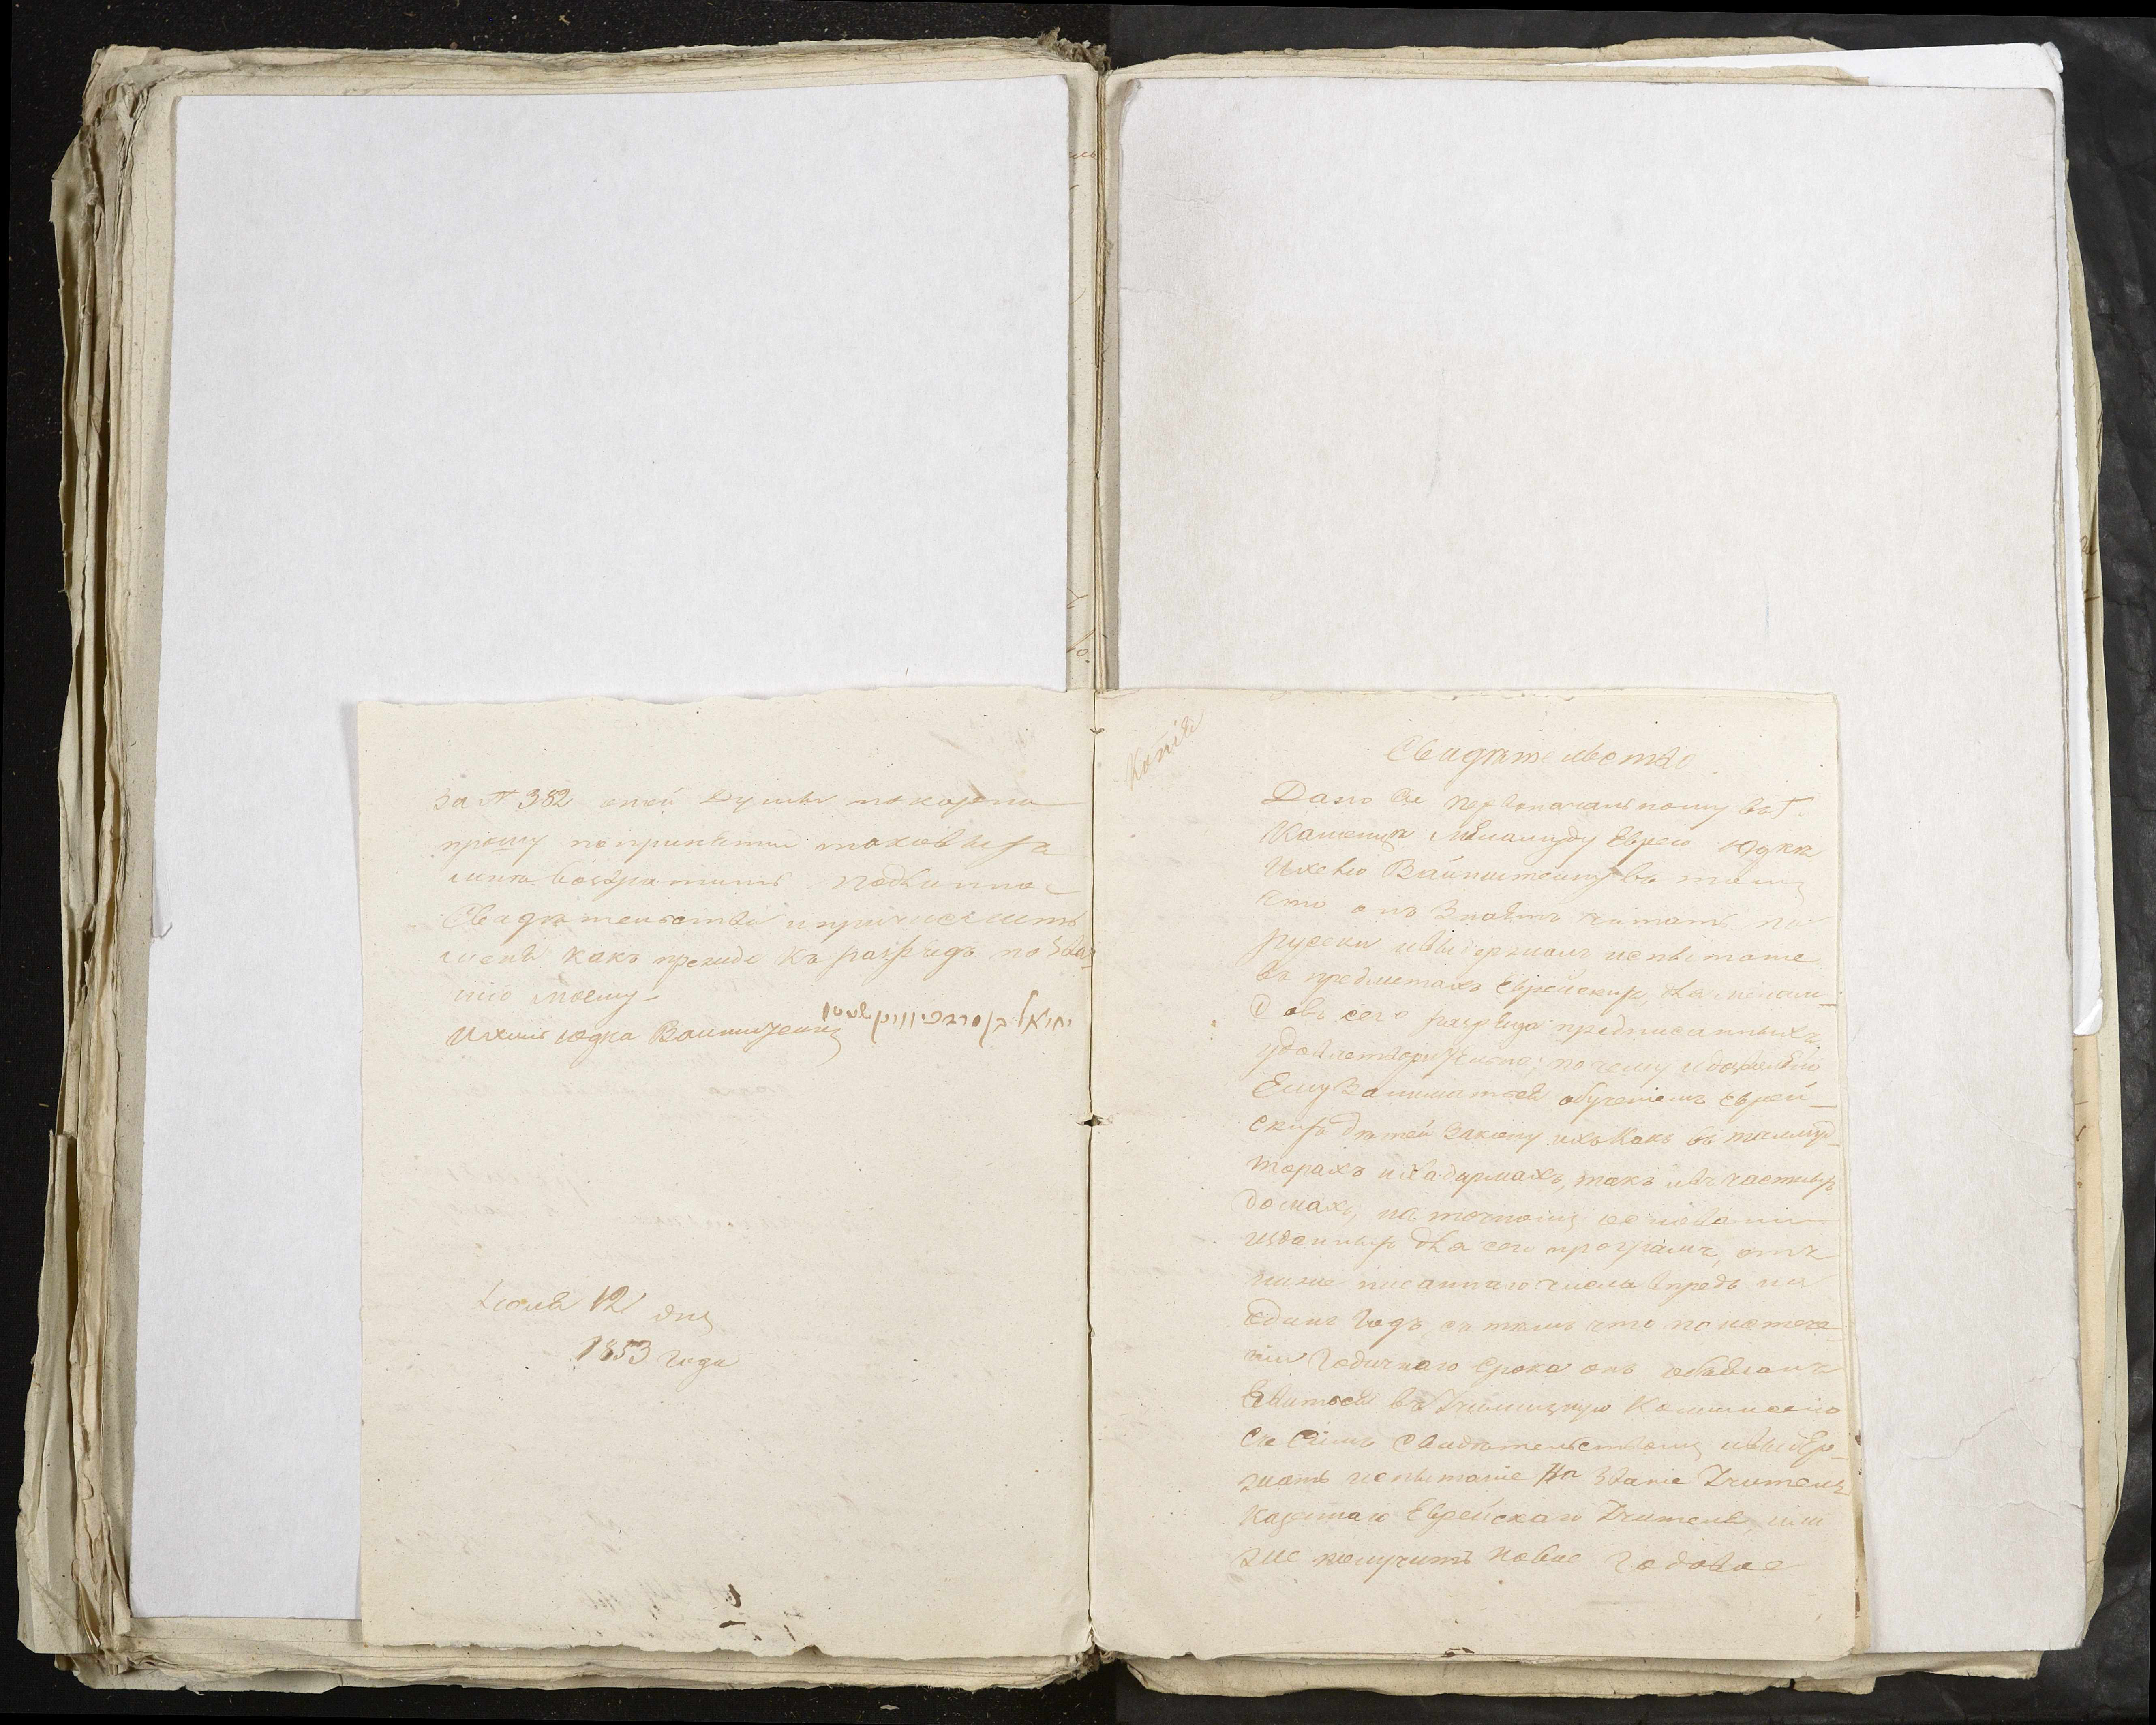 за № 382 оной Думы покорно
прошу по принятии таковыхъ
мнѣ возвратить подлинное
Свидѣтельство и причислить
меня какъ прежде къ разряду по зва-
нію моему.
Ихиль Юдка Ваинштеинъ
יחיאל
Іюля 12 дня
1853 года
Копія
Свидѣтельство
Дано Сіе первоначальному въ Г.
Каменцѣ Меламиду Еврею Юдкѣ
Ихелю Вайнштейну въ томъ
что онъ знаетъ читать по
русски и выдержалъ испытаніе
въ предметахъ Еврейскихъ, для мелам-
довъ сего разряда предписанныхъ
удовлетворительно, почему и дозволено
Ему заниматься обученіемъ Еврей-
скихъ дѣтей закону ихъ какъ въ талмуд
торахъ и хадармахъ, такъ и въ частныхъ
домахъ, на точномъ основаніи
изданныхъ для сего програмъ, отъ
ниже писаннаго числа впредь на
одинъ годъ, съ тѣмъ что по истече-
ніи годичнаго срока онъ обязанъ
явиться въ Училищную Коммисію
съ Симъ Свидѣтельствомъ и выдер-
жать испытаніе на званіе Учителя
казеннаго Еврейскаго Учителя, или
же получить новое годовое